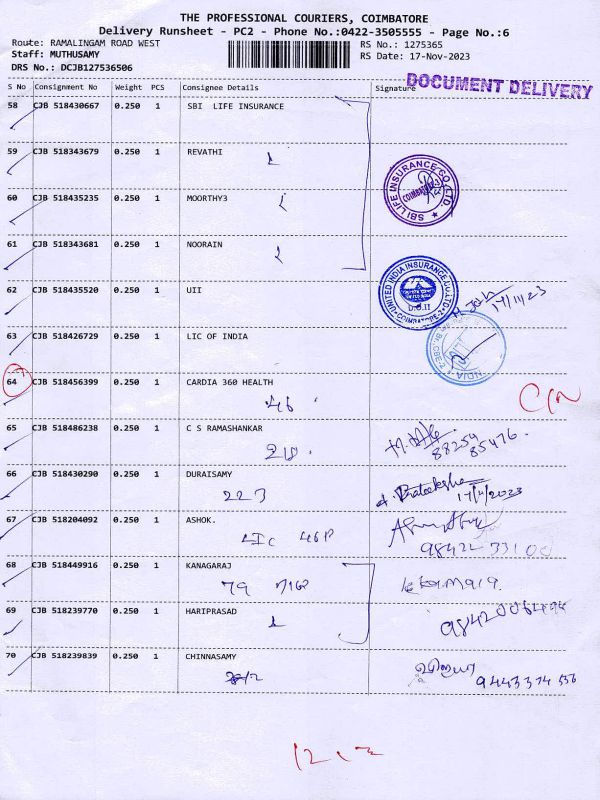 THE PROFESSIONAL COURIERS, COIMBATORE
Delivery Runsheet - PC2 - Phone No.:0422-3505555 - Page No.:6
Route: RAMALINGAM ROAD WEST
RS No.: 1275365
Staff: MUTHUSAMY
RS Date: 17-Nov-2023
DRS No.: DCJB127536506
DOCUMENT DELIVERY
S No Consignment No Weight PCS Consignee Details Signature
58 CJB 518430667 0.250 1 SBI LIFE INSURANCE
59 CJB 518343679 0.250 1 REVATHI
SBI LIFE INSURANCE CO. LTD.
60 CJB 518435235 0.250 1 MOORTHY3
61 CJB 518343681 0.250 1 NOORAIN
UNITED INDIA INSURANCE CO. LTD.
D.O.II
COIMBATORE-2
62 CJB 518435520 0.250 1 UII
17/11/23
63 CJB 518426729 0.250 1 LIC OF INDIA
64 CJB 518456399 0.250 1 CARDIA 360 HEALTH
46
65 CJB 518486238 0.250 1 C S RAMASHANKAR
88254
85476
66 CJB 518430290 0.250 1 DURAISAMY
223
17/11/2023
67 CJB 518204092 0.250 1 ASHOK.
LIC
68 CJB 518449916 0.250 1 KANAGARAJ
79
69 CJB 518239770 0.250 1 HARIPRASAD
70 CJB 518239839 0.250 1 CHINNASAMY
9443374556